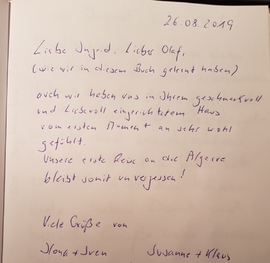 26.08.2019
Liebe Ingrid, Lieber Olaf,
(wie wir in diesem Buch gelernt haben)
auch wir haben uns in ihrem geschmackvoll
und Liebevoll eingerichtetem Haus
vom ersten Moment an sehr wohl
gefühlt.
Unsere erste Reise an die Algarve
bleibt somit unvergessen!
Viele Grüße von
Ilona + Sven Susanne + Klaus